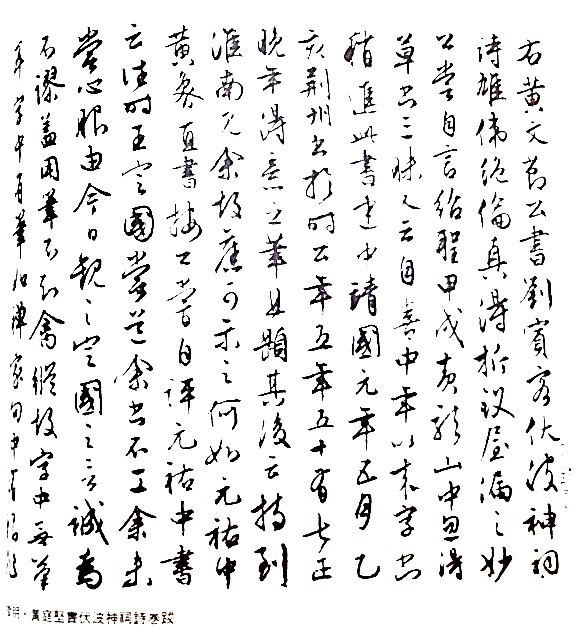 右黃文節公書劉賓客伏波神祠
詩雄偉絕倫真得折釵屋漏之妙
公嘗自言紹聖甲戌黃龍山中忽得
草書三昧又云自喜中年以來字書
稍進此書建中靖國元年五月乙
亥荊州書於時公年五年五十有七正
晚年得意之筆且題其後云持到
淮南見余故舊可示之何如元祐中
黃魯直書按公嘗自評元祐中書
云往時王定國嘗道余書不工余未
嘗心服由今日觀之定國之言誠為
不謬蓋用筆不知禽縱故字中無筆
耳字中有筆如禪家句中有眼
徵明·黃庭堅書伏波神祠詩卷跋